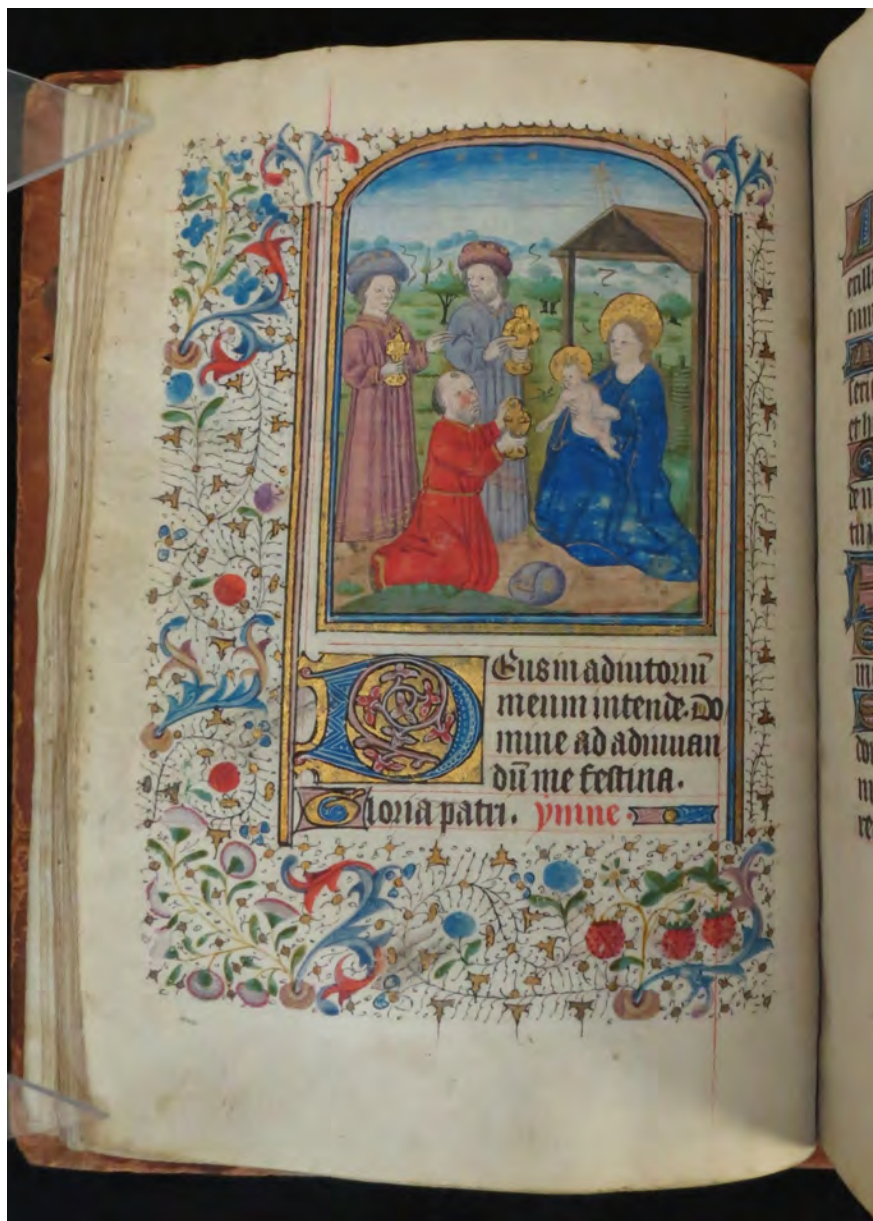 Deus in adiutoriū
meum intende. Do
mine ad adiuuan
dū me festina.
Gloria patri. ymne